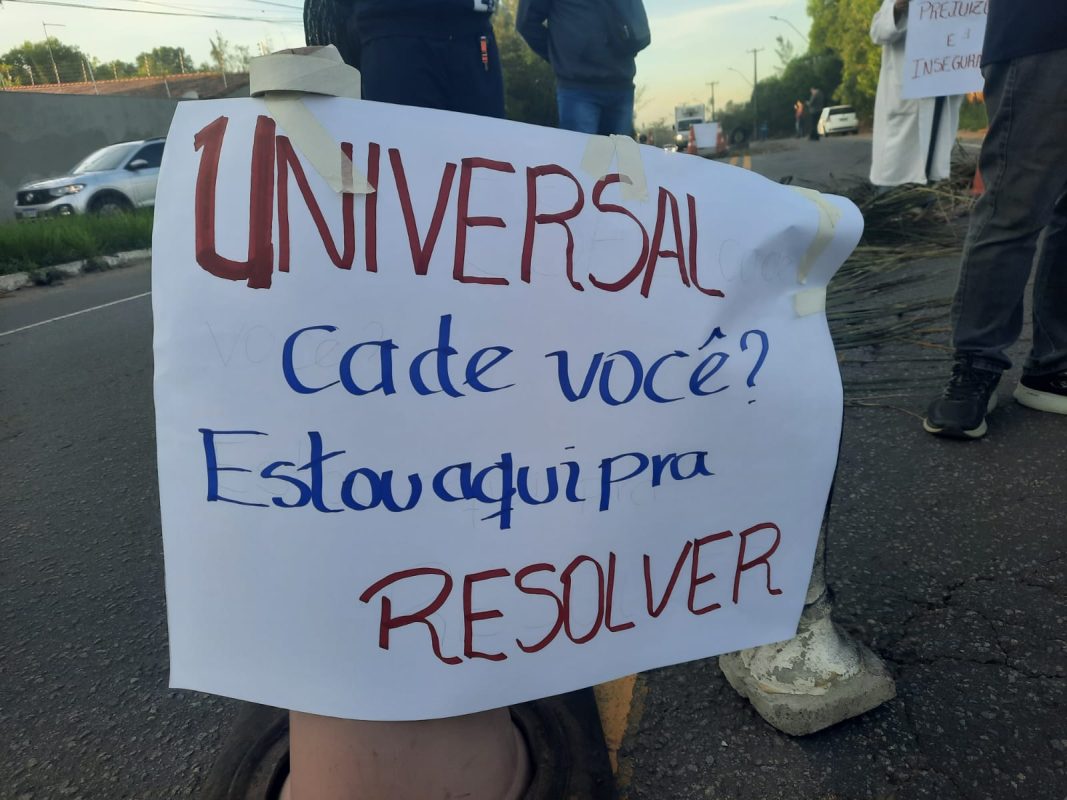 UNIVERSAL
Cade você?
Estou aqui pra
RESOLVER
PREJUIZO
E A